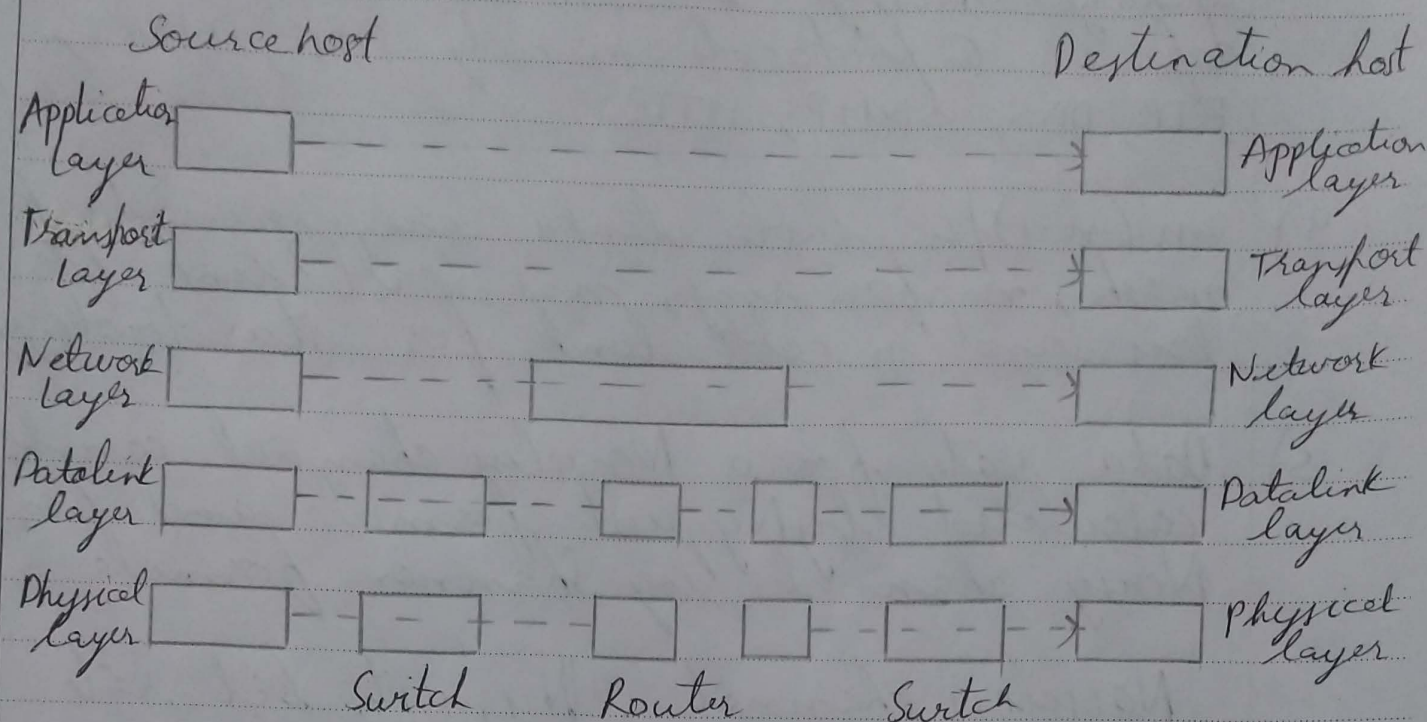 Source host
Destination host
Application
layer
Application
layer
Transport
layer
Transport
layer
Network
layer
Network
layer
Datalink
layer
Datalink
layer
Physical
layer
Physical
layer
Switch Router Switch